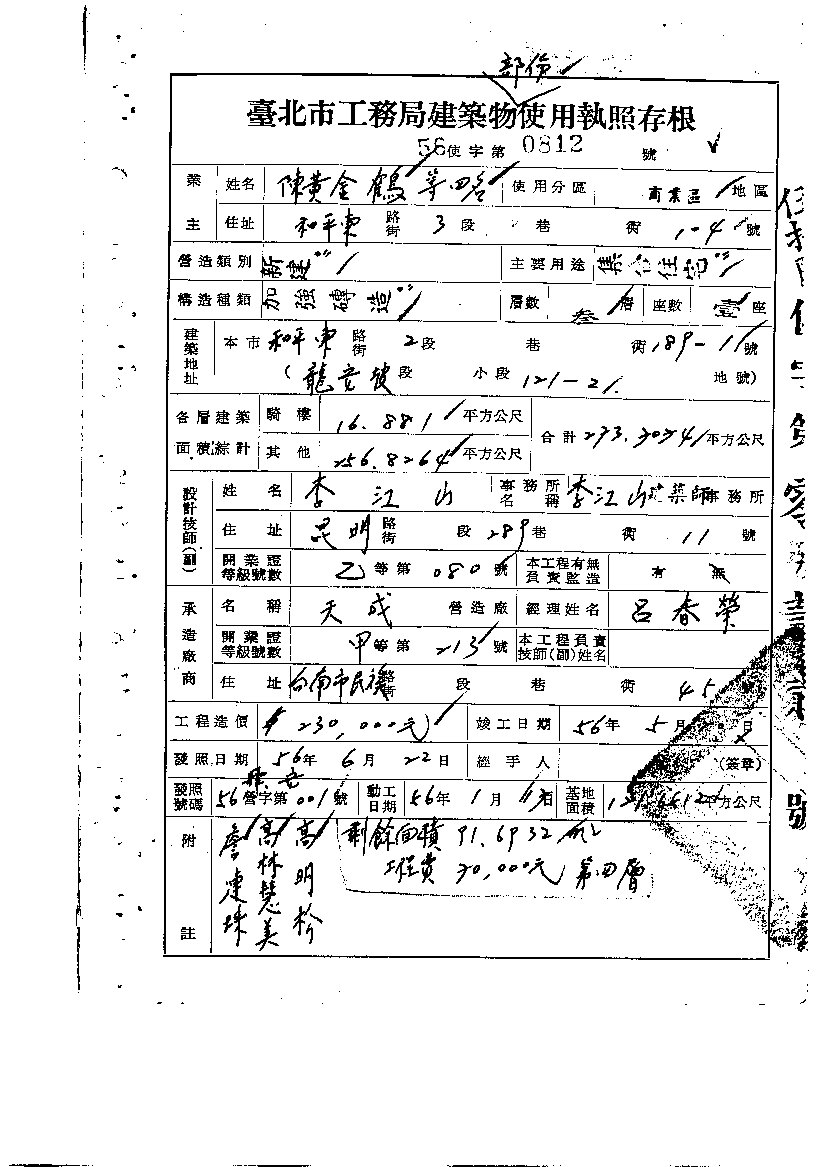 部份
臺北市工務局建築物使用執照存根
56使字第 0812 號
業主 姓名 陳黃金鶴等四名 使用分區 商業區 地區
住址 和平東 路街 3段 巷 衖 1-4 號
營造類別 新建 主要用途 集合住宅
構造種類 加強磚造 層數 叁 層 座數 壹 座
建築地址 本市 和平東 路街 2段 巷 衖 189-11 號
(龍安坡 段 小段 121-21 地號)
各層建築面積綜計 騎樓 16.881 平方公尺 合計 273.7074 平方公尺
其他 256.8264 平方公尺
設計技師(副) 姓名 李江山 事務所名稱 李江山建築師事務所
住址 昆明 路街 段 289巷 衖 11 號
開業證等級號數 乙等第 080 號 本工程有無負責監造 有 無
承造廠商 名稱 天成 營造廠 經理姓名 呂春榮
開業證等級號數 甲等第 213 號 本工程負責技師(副)姓名
住址 台南市民族 路街 段 巷 衖 45 號
工程造價 $230,000元 竣工日期 56年 5月 日
發照日期 56年 6月 22日 經手人 (簽章)
發照號碼 56營字第 001 號 動工日期 56年 1月 日 基地面積 平方公尺
附註 高明 剩餘面積 91.6932
高林慧美 工程費 70,000元 第四層
詹連珠
號